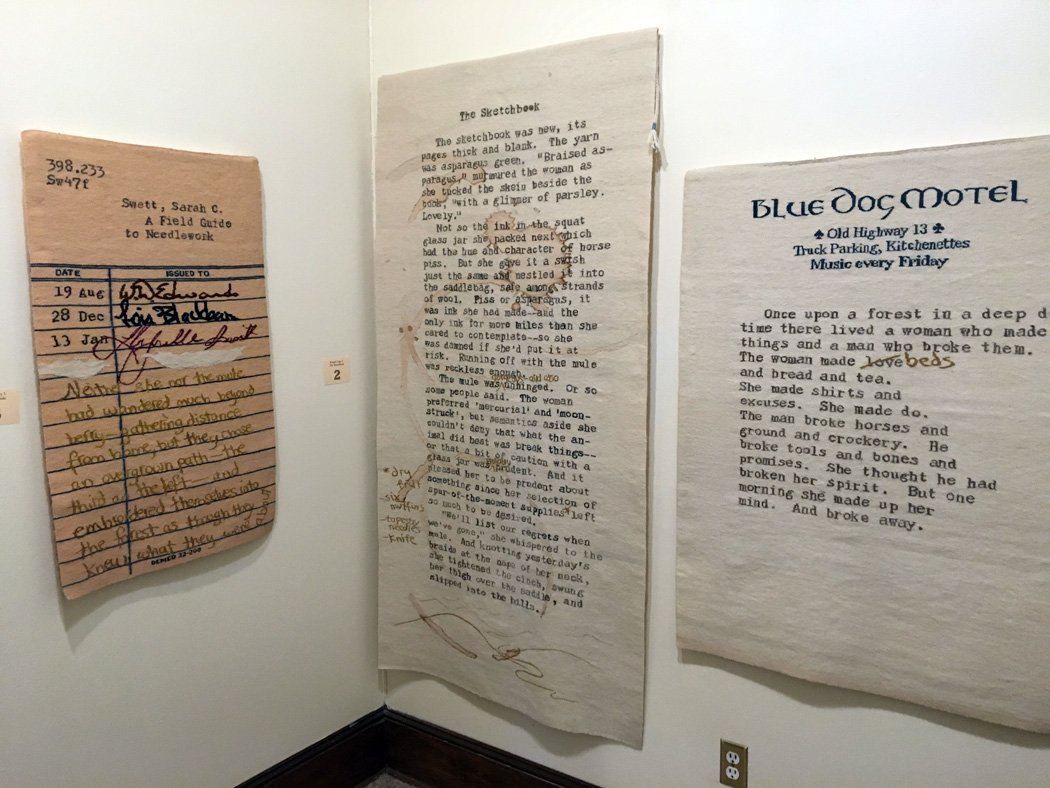 398.233
Sw47f
Swett, Sarah C.
A Field Guide
to Needlework
DATE ISSUED TO
19 Aug W.W. Edwards
28 Dec Lois Blackburn
13 Jan Smith
Neither she nor the mule
had wandered much beyond
berry-gathering distance
from home, but they chose
an overgrown path—the
third on the left—and
embroidered themselves into
the forest as though they
knew what they were doing
DEMCO 32-290
2
The Sketchbook
The sketchbook was new, its
pages thick and blank. The yarn
was asparagus green. "Braised as-
paragus," murmured the woman as
she tucked the skein beside the
book, "with a glimmer of parsley.
Lovely."
Not so the ink in the squat
glass jar she packed next which
had the hue and character of horse
piss. But she gave it a swish
just the same and nestled it into
the saddlebag, safe among strands
of wool. Piss or asparagus, it
was ink she had made--and the
only ink for more miles than she
cared to contemplate--so she
was damned if she'd put it at
risk. Running off with the mule
was reckless enough.
The mule was unhinged. Or so
some people said. The woman
preferred 'mercurial' and 'moon-
struck', but semantics aside she
couldn't deny that what the an-
imal did best was break things--
or that a bit of caution with a
glass jar was prudent. And it
pleased her to be prudent about
something since her selection of
spur-of-the-moment supplies left
so much to be desired.
"We'll list our regrets when
we've gone," she whispered to the
mule. And knotting yesterday's
braids at the nape of her neck,
she tightened the cinch, swung
her thigh over the saddle, and
slipped into the hills.
*dry
-six
muffins
-tapestry
needles
-knife
Blue Dog Motel
Old Highway 13
Truck Parking, Kitchenettes
Music every Friday
Once upon a forest in a deep d
time there lived a woman who made
things and a man who broke them.
The woman made love beds
and bread and tea.
She made shirts and
excuses. She made do.
The man broke horses and
ground and crockery. He
broke tools and bones and
promises. She thought he had
broken her spirit. But one
morning she made up her
mind. And broke away.